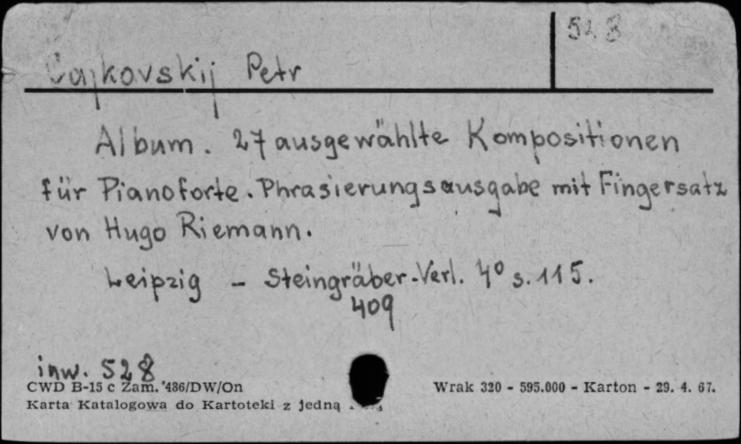 528
Čajkovskij Petr
Album. 27 ausgewählte Kompositionen
für Pianoforte. Phrasierungsausgabe mit Fingersatz
von Hugo Riemann.
Leipzig - Steingräber-Verl. 4° s. 115.
409
inw. 528
CWD B-15 c Zam. '486/DW/On
Wrak 320 - 595.000 - Karton - 29. 4. 67.
Karta Katalogowa do Kartoteki z jedną